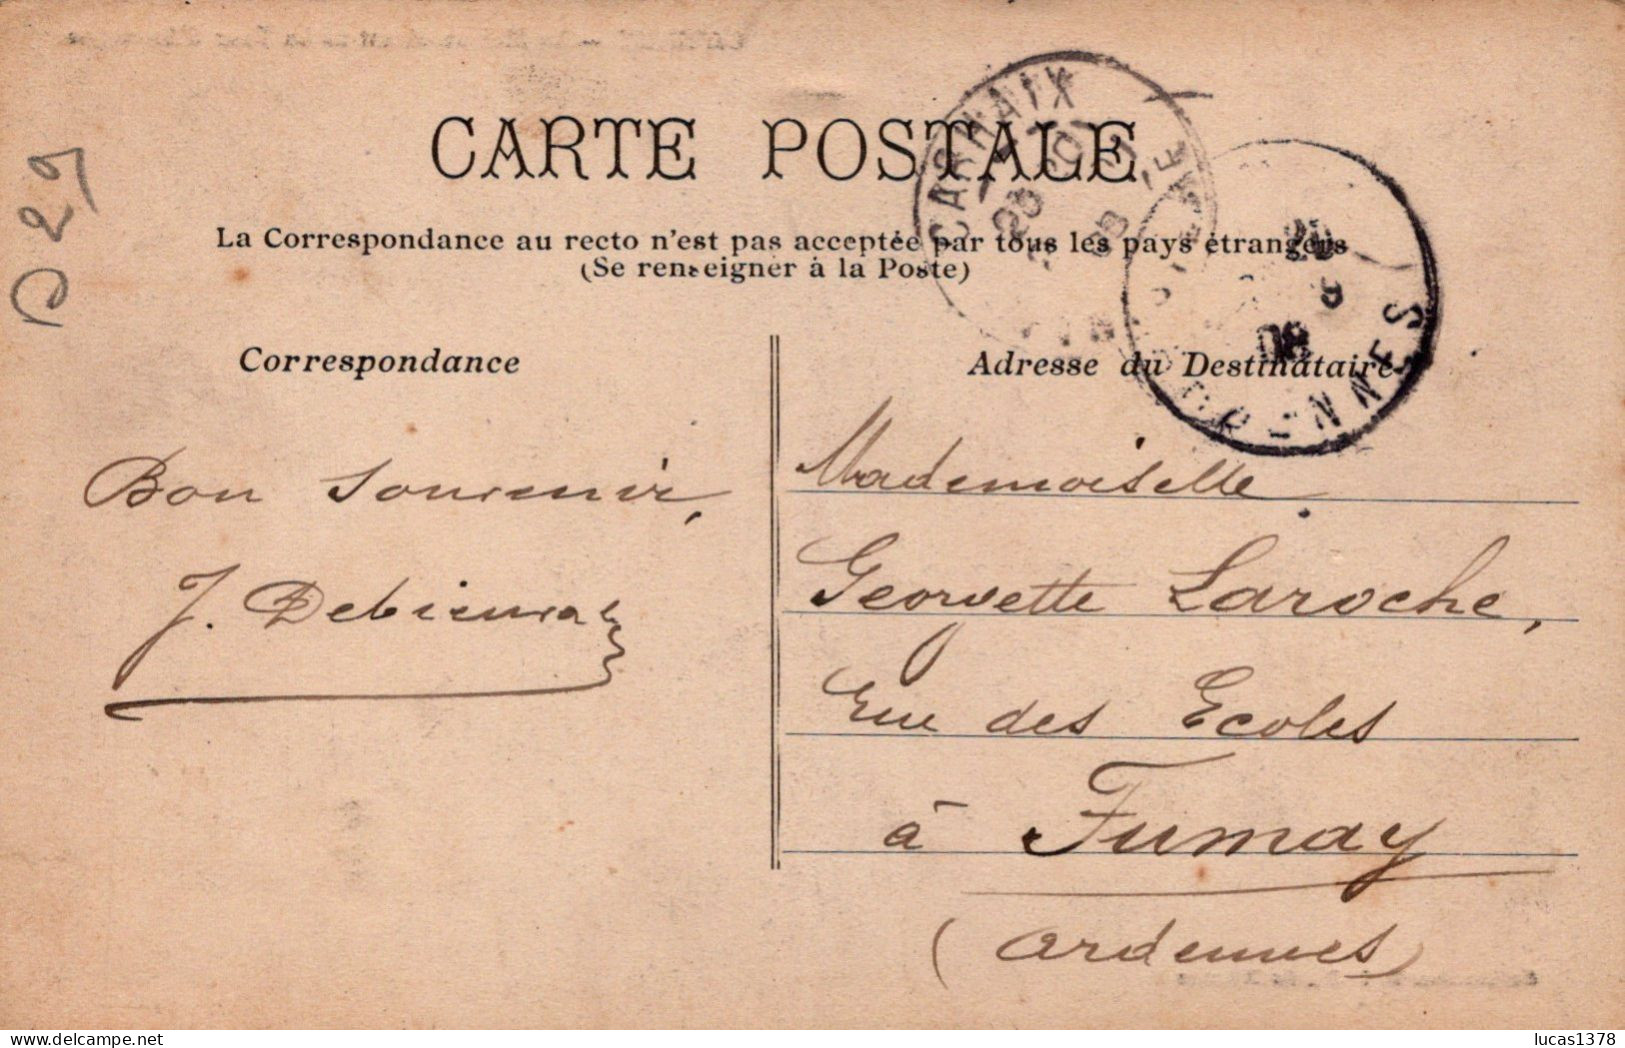 D29
CARTE POSTALE
CARHAIX
08
La Correspondance au recto n'est pas acceptée par tous les pays étrangers
(Se renseigner à la Poste)
08
ARDENNES
Correspondance
Adresse du Destinataire
Bon Souvenir,
J.
Mademoiselle
Georgette Laroche,
Rue des Ecoles
à Fumay
(Ardennes)
lucas1378